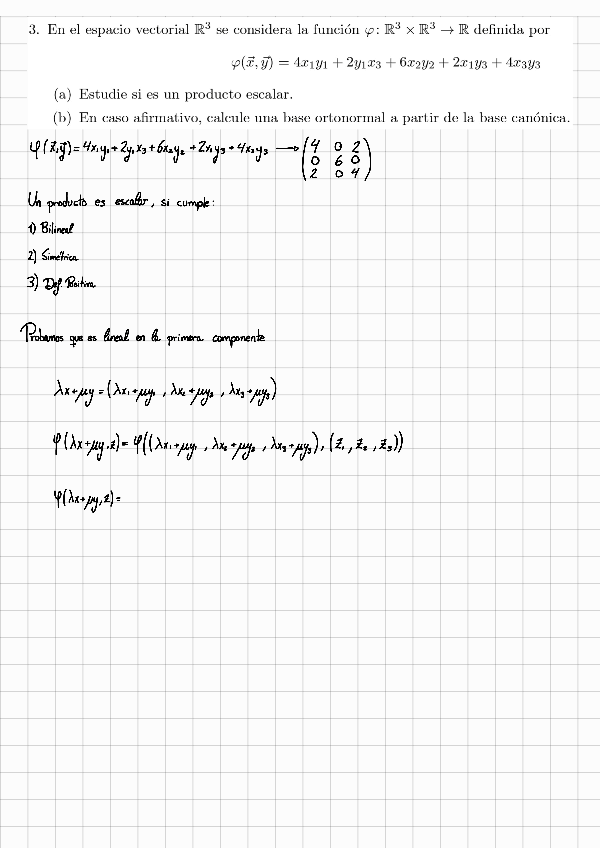 3. En el espacio vectorial ℝ³ se considera la función φ: ℝ³ × ℝ³ → ℝ definida por
φ(x⃗, y⃗) = 4x₁y₁ + 2y₁x₃ + 6x₂y₂ + 2x₁y₃ + 4x₃y₃
(a) Estudie si es un producto escalar.
(b) En caso afirmativo, calcule una base ortonormal a partir de la base canónica.
φ(x⃗,y⃗)= 4x₁y₁+2y₁x₃+6x₂y₂+2x₁y₃+4x₃y₃ → (4 0 2
0 6 0
2 0 4)
Un producto es escalar, si cumple:
1) Bilineal
2) Simétrica
3) Def. Positiva
Probamos que es lineal en la primera componente
λx+μy = (λx₁+μy₁ , λx₂+μy₂ , λx₃+μy₃)
φ(λx+μy,z)= φ((λx₁+μy₁ , λx₂+μy₂ , λx₃+μy₃), (z₁, z₂, z₃))
φ(λx+μy,z)=